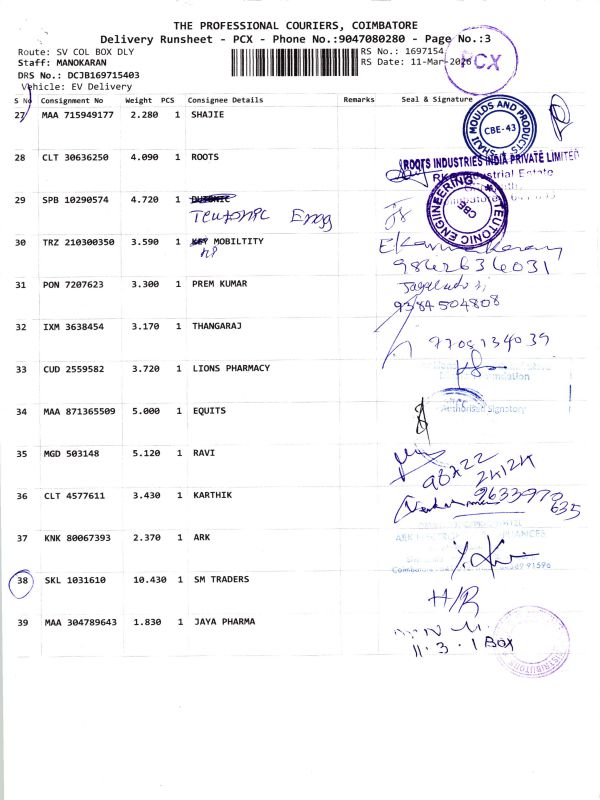 THE PROFESSIONAL COURIERS, COIMBATORE
Delivery Runsheet - PCX - Phone No.:9047080280 - Page No.:3
Route: SV COL BOX DLY
RS No.: 1697154
Staff: MANOKARAN
RS Date: 11-Mar-2026
PCX
DRS No.: DCJB169715403
Vehicle: EV Delivery
S No Consignment No Weight PCS Consignee Details Remarks Seal & Signature
27 MAA 715949177 2.280 1 SHAJIE
CBE-43
28 CLT 30636250 4.090 1 ROOTS
ROOTS INDUSTRIES INDIA PRIVATE LIMITED
Industrial Estate
29 SPB 10290574 4.720 1 DUTONIC
Teutonic Engg
TEUTONIC ENGINEERING
CBE
30 TRZ 210300350 3.590 1 KEY MOBILTITY
9842636031
31 PON 7207623 3.300 1 PREM KUMAR
9384504808
32 IXM 3638454 3.170 1 THANGARAJ
7708134039
33 CUD 2559582 3.720 1 LIONS PHARMACY
34 MAA 871365509 5.000 1 EQUITS
Authorised Signatory
35 MGD 503148 5.120 1 RAVI
36 CLT 4577611 3.430 1 KARTHIK
9633970
635
37 KNK 80067393 2.370 1 ARK
38 SKL 1031610 10.430 1 SM TRADERS
H/R
39 MAA 304789643 1.830 1 JAYA PHARMA
11.3.1 BOX